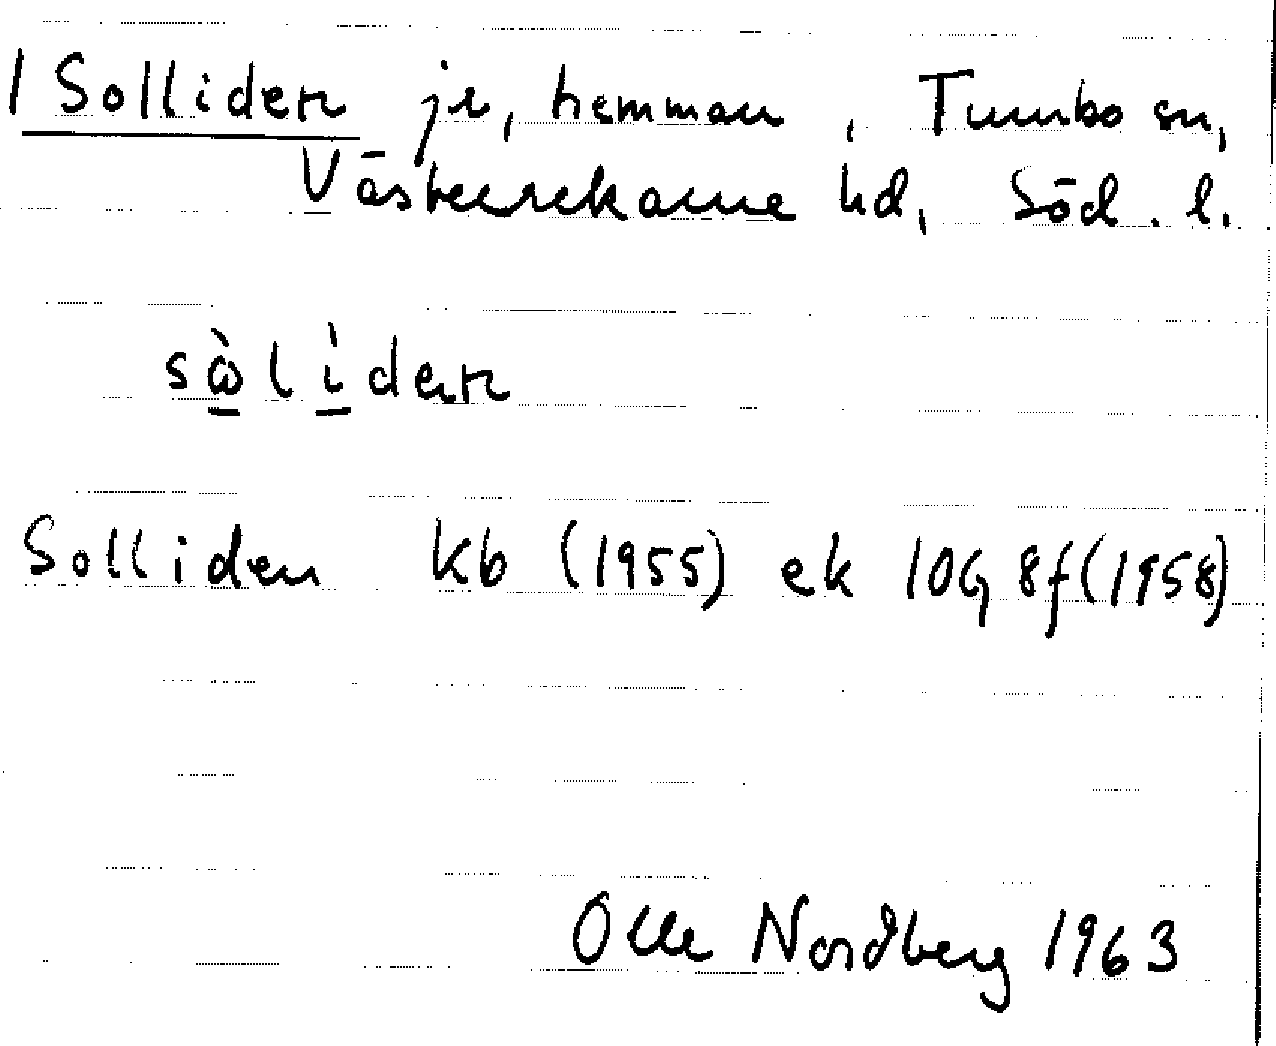 1 Solliden je, hemman, Tumbo sn,
Västerrekarne hd, Söd. l.
sòlìden
Solliden kb (1955) ek 10G 8f (1958)
Olle Nordberg 1963